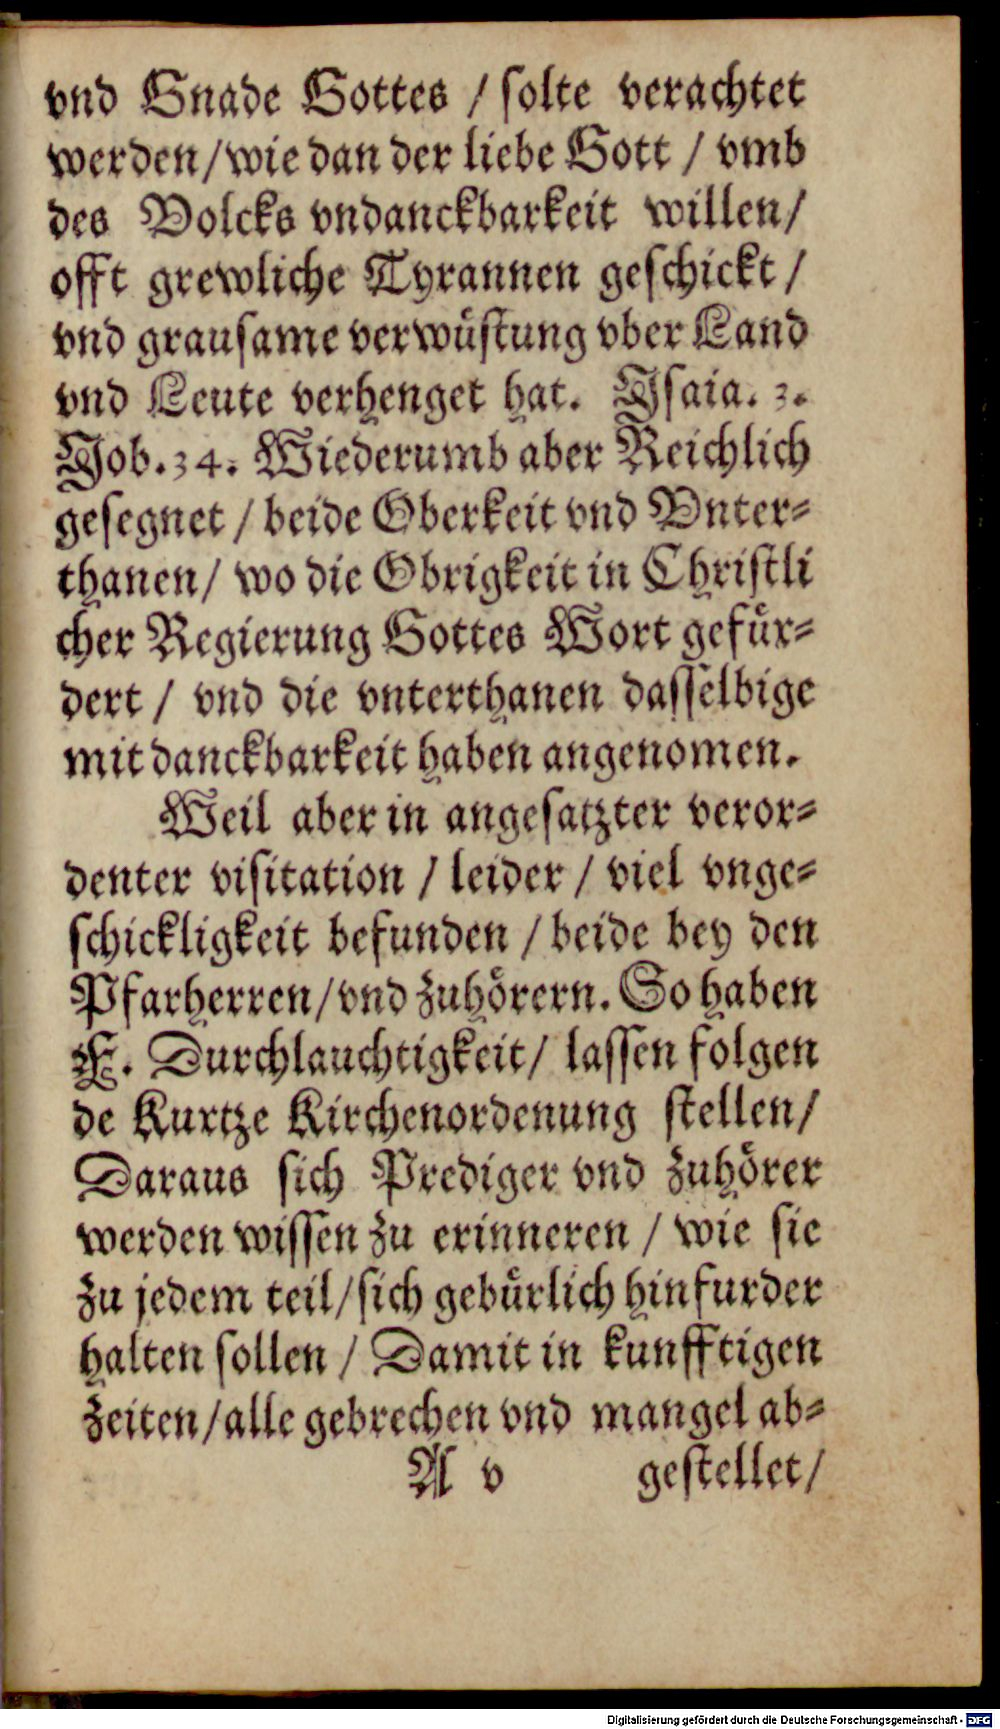 vnd Gnade Gottes / solte verachtet
werden/wie dan der liebe Gott / vmb
des Volcks vndanckbarkeit willen/
offt grewliche Tyrannen geschickt /
vnd grausame verwüstung vber Land
vnd Leute verhenget hat. Isaia. 3.
Job. 34. Wiederumb aber Reichlich
gesegnet / beide Oberkeit vnd Vnter=
thanen/ wo die Obrigkeit in Christli
cher Regierung Gottes Wort gefür=
dert / vnd die vnterthanen dasselbige
mit danckbarkeit haben angenomen.
Weil aber in angesatzter veror=
denter visitation / leider / viel vnge=
schickligkeit befunden / beide bey den
Pfarherren/vnd zuhörern. So haben
E. Durchlauchtigkeit/ lassen folgen
de Kurtze Kirchenordenung stellen/
Daraus sich Prediger vnd zuhörer
werden wissen zu erinneren / wie sie
zu jedem teil/sich gebürlich hinfurder
halten sollen / Damit in kunfftigen
zeiten/alle gebrechen vnd mangel ab=
A v gestellet/
Digitalisierung gefördert durch die Deutsche Forschungsgemeinschaft - DFG